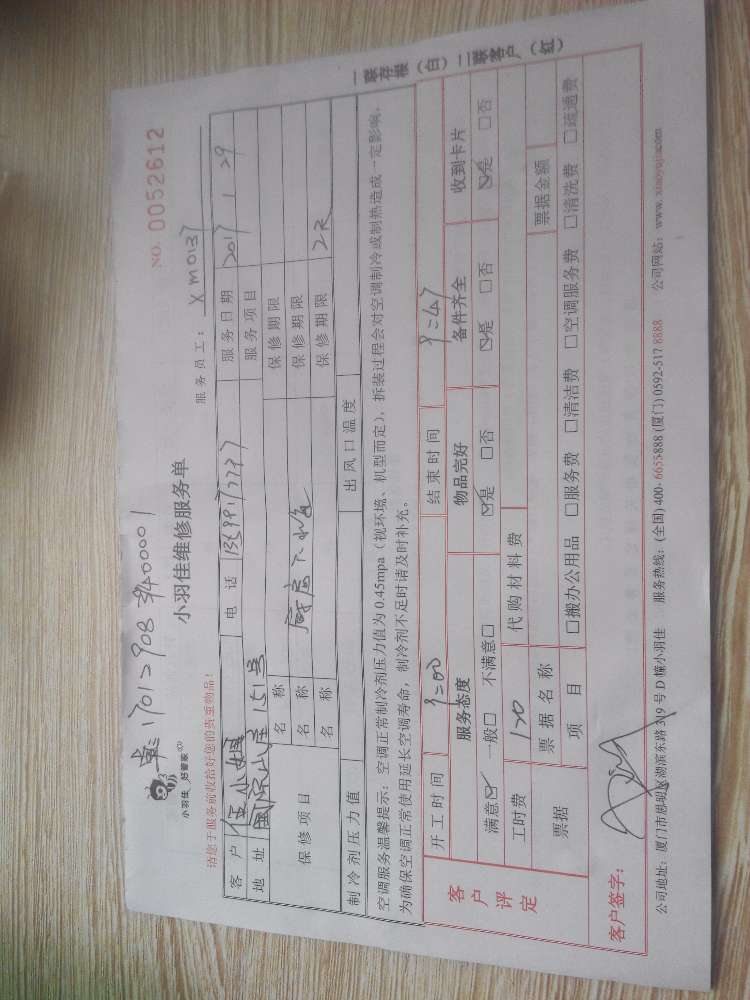 单:170129089400001
小羽佳 好管家
小羽佳维修服务单
NO. 0052612
请您于服务前收拾好您的贵重物品!
服务员工: XM0137
客户 伍小姐 电话 服务日期 2017 1 29
地址 国际山庄151号 服务项目
保修项目 名称 保修期限
名称 厨房下水道 保修期限
名称 保修期限 2天
制冷剂压力值 出风口温度
空调服务温馨提示:空调正常制冷剂压力值为0.45mpa(视环境、机型而定),拆装过程会对空调制冷或制热造成一定影响,
为确保空调正常使用延长空调寿命,制冷剂不足时请及时补充。
客户评定
开工时间 9=00 结束时间 9=47
服务态度 物品完好 备件齐全 收到卡片
满意☑ 一般□ 不满意□ ☑是 □否 ☑是 □否 ☑是 □否
工时费 120 代购材料费
票据 票据名称 票据金额
项目 □搬办公用品 □服务费 □清洁费 □空调服务费 □清洗费 □疏通费
客户签字:
公司地址:厦门市思明区湖滨东路319号D幢小羽佳 服务热线:(全国)400-6655-888 (厦门)0592-517 8888 公司网站:www.xiaoyujia.com
一联存根(白)二联客户(红)